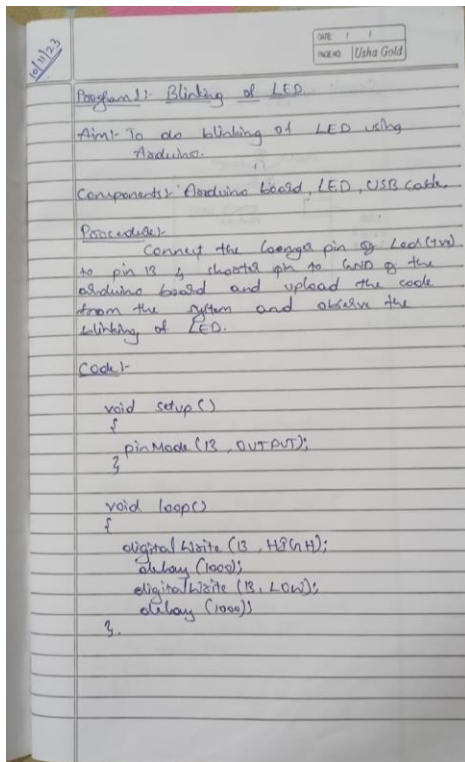 10/11/23
DATE: / /
PAGE NO. Usha Gold
Program 1:- Blinking of LED
Aim:- To do blinking of LED using
Arduino.
Components:- Arduino board, LED, USB Cable.
Procedure:-
Connect the longer pin of Led (+ve)
to pin 13 & shorter pin to GND of the
arduino board and upload the code
from the system and observe the
blinking of LED.
Code:-
void setup()
{
pinMode (13, OUTPUT);
}
void loop()
{
digitalWrite (13, HIGH);
delay (1000);
digitalWrite (13, LOW);
delay (1000);
}.